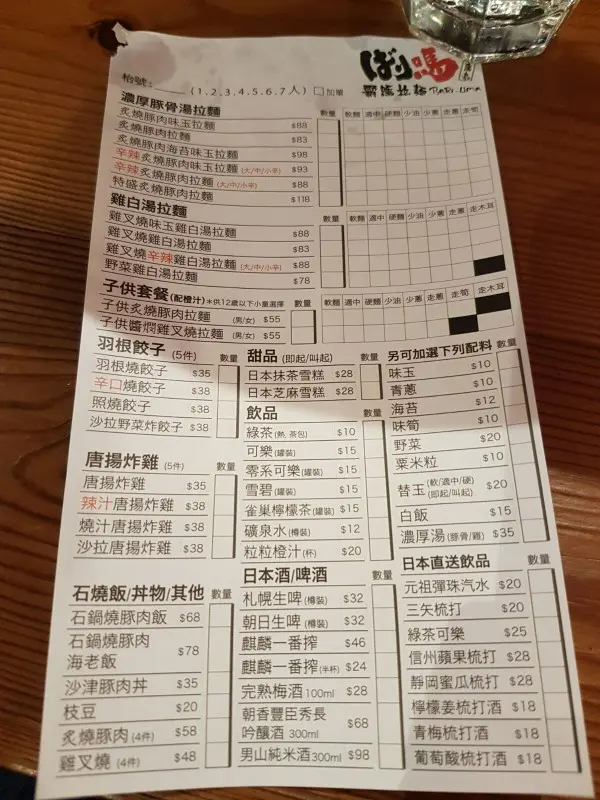 ばり馬
豚骨拉麵 BARI-UMA
枱號: (1.2.3.4.5.6.7人) □加單
濃厚豚骨湯拉麵 數量 軟麵 適中 硬麵 少油 少蔥 走蔥 走筍
炙燒豚肉味玉拉麵 $88
炙燒豚肉拉麵 $83
炙燒豚肉海苔味玉拉麵 $98
辛辣炙燒豚肉味玉拉麵 (大/中/小辛) $93
辛辣炙燒豚肉拉麵 (大/中/小辛) $88
特盛炙燒豚肉拉麵 $118
雞白湯拉麵 數量 軟麵 適中 硬麵 少油 少蔥 走蔥 走筍 走木耳
雞叉燒味玉雞白湯拉麵 $88
雞叉燒雞白湯拉麵 $83
雞叉燒辛辣雞白湯拉麵 (大/中/小辛) $88
野菜雞白湯拉麵 $78
子供套餐 (配橙汁) *供12歲以下小童選擇 數量 軟麵 適中 硬麵 少油 少蔥 走蔥 走筍 走木耳
子供炙燒豚肉拉麵 (男/女) $55
子供醬燜雞叉燒拉麵 (男/女) $55
羽根餃子 (5件) 數量
羽根燒餃子 $35
辛口燒餃子 $38
照燒餃子 $38
沙拉野菜炸餃子 $38
唐揚炸雞 (5件) 數量
唐揚炸雞 $35
辣汁唐揚炸雞 $38
燒汁唐揚炸雞 $38
沙拉唐揚炸雞 $38
石燒飯/丼物/其他 數量
石鍋燒豚肉飯 $68
石鍋燒豚肉
海老飯 $78
沙津豚肉丼 $35
枝豆 $20
炙燒豚肉 (4件) $58
雞叉燒 (4件) $48
甜品 (即起/叫起) 數量
日本抹茶雪糕 $28
日本芝麻雪糕 $28
飲品 數量
綠茶 (熱, 茶包) $10
可樂 (罐裝) $15
零系可樂 (罐裝) $15
雪碧 (罐裝) $15
雀巢檸檬茶 (罐裝) $15
礦泉水 (樽裝) $12
粒粒橙汁 (杯) $20
日本酒/啤酒 數量
札幌生啤 (樽裝) $32
朝日生啤 (樽裝) $32
麒麟一番搾 $46
麒麟一番搾 (半杯) $24
完熟梅酒 100ml $28
朝香豐臣秀長
吟釀酒 300ml $68
男山純米酒 300ml $98
另可加選下列配料 數量
味玉 $10
青蔥 $10
海苔 $12
味筍 $10
野菜 $20
粟米粒 $10
替玉 (軟/適中/硬) (即起/叫起) $20
白飯 $15
濃厚湯 (豚骨/雞) $35
日本直送飲品 數量
元祖彈珠汽水 $20
三矢梳打 $20
綠茶可樂 $25
信州蘋果梳打 $28
靜岡蜜瓜梳打 $28
檸檬姜梳打酒 $18
青梅梳打酒 $18
葡萄酸梳打酒 $18